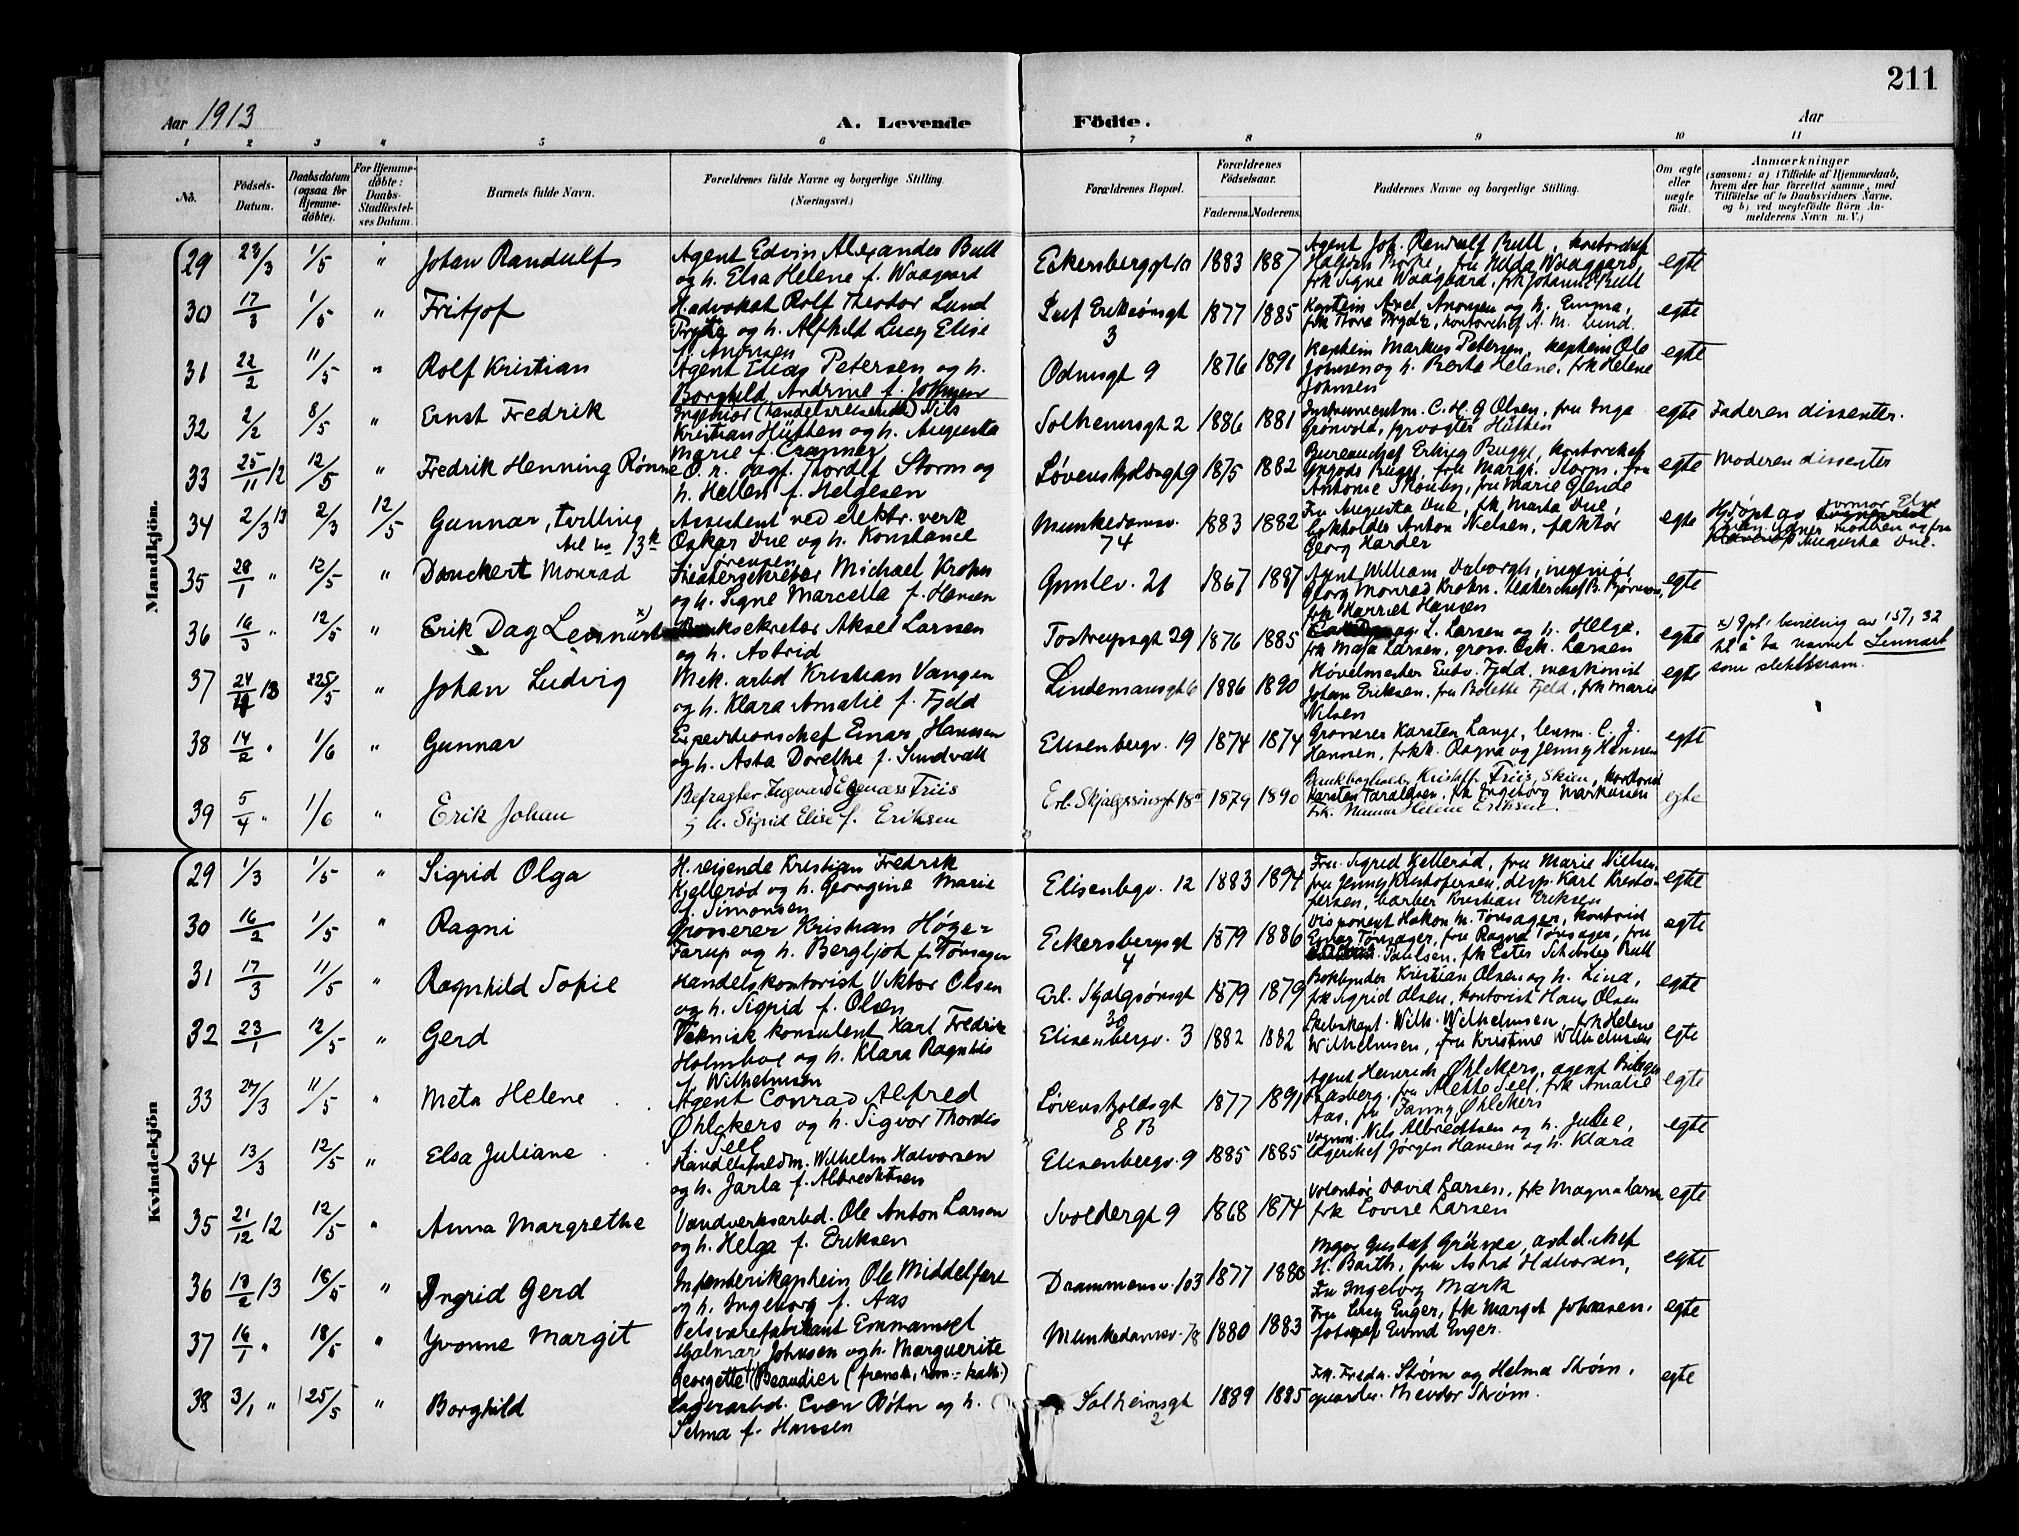 211
Aar 1913
A. Levende Födte.
Aar
1 2 3 4 5 6 7 8 9 10 11
No.
Födsels-Datum.
Daabsdatum (ogsaa for Hjemme-døbte).
For Hjemme-døbte: Daabs-Stadfæstel-ses Datum.
Barnets fulde Navn.
Forældrenes fulde Navne og borgerlige Stilling.
(Næringsvei.)
Forældrenes Bopæl.
Forældrenes Födselsaar.
Faderens. Moderens.
Faddernes Navne og borgerlige Stilling.
Om ægte eller uægte födt.
Anmærkninger
(saasom: a) i Tilfælde af Hjemmedaab,
hvem der har forrettet samme, med
Tilföielse af to Daabsvidners Navne,
og b) ved uægtefödte Börn An-
melderens Navn m. V.)
Mandkjøn.
29 23/3 1/5 " Johan Randulf
Agent Edvin Alexander Bull
og h. Elsa Helene f. Waagaard
Eckersbergsgt 10 1883 1887
Agent Joh. Randulf Bull, kontorchef
frk Signe Waagaard, frk Johanne Bull
egte
30 17/3 1/5 " Fritjof
H. advokat Rolf Theodor Lund
Tryde og h. Alfhild Lucy Elise
f. Andrsen
Leif Eriksöns gt
3
1877 1885
Kaptein Axel og h. Emma,
frk Thora Tryde, kontorchef A. M. Lund.
egte
31 22/2 11/5 " Rolf Kristian
Agent Elias Petersen og h.
Borghild Andrine f. Johnsen
Odinsgt 9 1876 1891
Kaptein Markus Petersen, kaptein Ole
Johnsen og h. Berta Helene, frk Helene
Johnsen
egte
32 2/2 8/5 " Ernst Fredrik
Ingeniør (handelsreisende) Nils
Kristian Hütten og h. Augusta
Marie f. Cranner
Solheimsgt 2 1886 1881
Instrumentm. C. H. G Olsen, fru Inga
Grönvold, fyrvogter Hütten
egte Faderen dissenter.
33 25/11 12 12/5 " Fredrik Henning Rønne
O. r. sagf. Thorolf Storm og
h. Hellen f. Helgesen
Løvenskjoldsgt 9 1875 1882
Bureauchef Erling Bugge, kontorchef
Bugge, fru Margr. Storm, fru
Antonie, fru Marie Glende
egte Moderen dissenter
34 2/3 13 2/3 12/5 Gunnar, tvilling
Assistent ved elektr. verk
Oskar Due og h. Konstance
f. Sörensen
Munkedamsv.
74
1883 1882
Fru Augusta Due, frk Marta Due,
Anton Nielsen, faktor
Georg Harder
egte Hjdpt av
Augusta Due.
35 28/1 " 12/5 " Danckert Monrad
Teatersekretær Michael Krohn
og h. Signe Marcella f. Hansen
Gimlev. 21 1867 1887
Agent William, ingeniør
Georg Monrad Krohn, teaterchef B. Björnson,
frk Harriet Hansen
egte
36 16/3 " 12/5 " Erik Dag Lennart x)
Banksekretær Aksel Larsen
og h. Astrid
Tostrupsgt 29 1876 1885
L. Larsen og h. Helga,
frk Maja Larsen, gross. Osk. Larsen
egte x) Gpl. bevilling av 15/1 32
til å ta navnet Lennart
som slektsnavn.
37 24/4 13 25/5 " Johan Ludvig
Mek. arbd Kristian Vangen
og h. Klara Amalie f. Fjeld
Lindemansgt 6 1886 1890
Høvelmester Fjeld, maskinist
Johan Eriksen, fru Bolette Fjeld, frk Marie
Nilsen
egte
38 14/2 " 1/6 " Gunnar
Expeditionschef Einar Hanssen
og h. Asta Dorethe f. Sundvall
Elisenbergv. 19 1874 1874
Grosserer Karsten Lange, lensm. C. J.
Hanssen, frkk. Ragna og Jenny Hanssen
egte
39 5/4 " 1/6 " Erik Johan
Befragter Ingvard Egenæss Friis
g h. Sigrid Elise f. Eriksen
Erl. Skjalgssønsgt 18a 1879 1890
Bankbogholder Kristoff. Friis, Skien,
Karsten Taraldsen, frk Ingeborg Markussen
frk. Helene Eriksen.
egte
Kvindekjön
29 1/3 1/5 " Sigrid Olga
H. reisende Kristian Fredrik
Kjellerød og h. Georgine Marie
f. Simonsen
Elisenbgv. 12 1883 1894
Fru Sigrid Kjellerød, fru Marie Nielsen,
fru Jenny Kristofersen, disp. Karl Kristo-
fersen, barber Kristian Eriksen
egte
30 16/2 1/5 " Ragni
Grosserer Kristian Høyer
Farup og h. Bergljot f. Tønsager
Eckersbergsgt
4
1879 1886
Disponent Hakon M. Tønsager, kontorist
Einar Tønsager, fru Ragna Tønsager, fru
Paulsen, frk Ester Schibsted Bull
egte
31 17/3 11/5 " Ragnhild Sofie
Handelskontorist Viktor Olsen
og h. Sigrid f. Olsen
Erl. Skjalgsønsgt
30
1879 1879
Bokbinder Kristian Olsen og h. Lina,
frk Sigrid Olsen, kontorist Hans Olsen
egte
32 23/1 12/5 " Gerd
Teknisk konsulent Karl Fredrik
Holmboe og h. Klara Ragnhis
f. Wilhelmsen
Elisenbergv. 3 1882 1882
Skibskapt. Wilh. Wilhelmsen, frk Helene
Wilhelmsen, fru Kristine Wilhelmsen
egte
33 27/3 11/5 " Meta Helene
Agent Conrad Alfred
Øhlckers og h. Sigvor Thordis
f. Sell
Løvenskjoldsgt
8 B
1877 1891
Agent Heinrich Øhlckers, agent Birger
Aasberg, fru Alette Sell, frk Amalie
Aas, frk Fanny Øhlckers
egte
34 13/3 12/5 " Elsa Juliane
Handelsfuldm. Wilhelm Halvorsen
og h. Jarla f. Albrecktsen
Elisenbergv. 9 1885 1885
Vognm. Nils Albrecktsen og h. Julie,
lagerchef Jørgen Hansen og h. Klara
egte
35 21/12 12 12/5 " Anna Margrethe
Vandverksarbd. Ole Anton Larsen
og h. Helga f. Eriksen
Svoldergt 9 1868 1874
Volontör David Larsen, frk Magna Larsen
frk Lovise Larsen
egte
36 13/2 13 18/5 " Ingrid Gerd
Infanterikaptein Ole Middelfart
og h. Ingeborg f. Aas
Drammensv. 103 1877 1880
Gustaf Grüner, avd.chef
H. Barth, fru Astrid Halvorsen,
Fru Ingeborg Mark
egte
37 16/1 " 18/5 " Yvonne Margit
Pelsvarefabrikant Emmanuel
Hjalmar Johnsen og h. Marguerite
Georgette Beaudier (fransk, rom.-kath.)
Munkedamsv. 78 1880 1883
Fru Lucy Enger, frk Margit Johnsen,
fotograf Eivind Enger.
egte
38 3/1 " 25/5 " Borghild
Lagerarbd. Even Bøhn og h.
Selma f. Hanssen
Solheimsgt
2
1889 1885
Frk. Fredr. Strøm og Helma Strøm,
Theodor Strøm.
egte